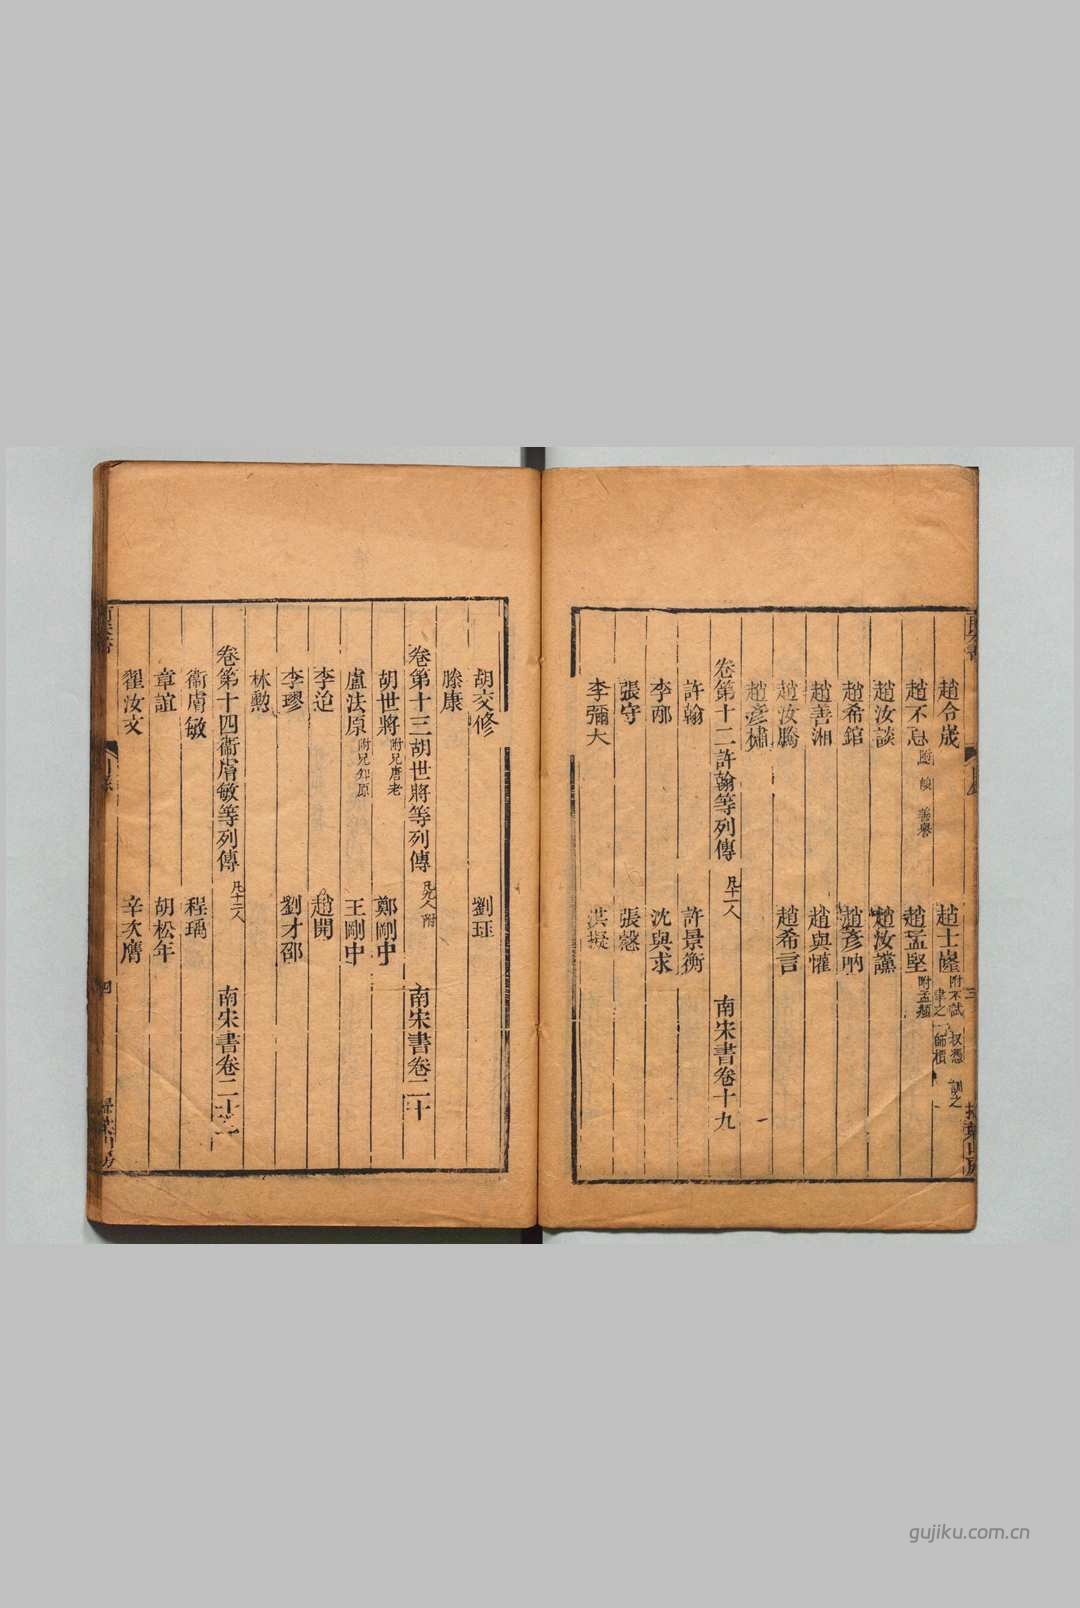 趙令𡷫 趙士㒟 附不試 叔憑 訓之 聿之 師檟
趙不忌 善譽 趙孟堅 附孟頫
趙汝談 趙汝讜
趙希錧 趙彥吶
趙善湘 趙與懽
趙汝騰 趙希言
趙彥橚
卷第十二許翰等列傳 凡十一人 南宋書卷十九
許翰 許景衡
李邴 沈與求
張守 張愨
李彌大 洪擬
三
掃葉山房
胡交修 劉珏
滕康
卷第十三胡世將等列傳 凡九人 附 南宋書卷二十
胡世將 附兄唐老 鄭剛中
盧法原 附兄知原 王剛中
李迨 趙開
李璆 劉才邵
林勲
卷第十四衞膚敏等列傳 凡十二人 南宋書卷二十
衞膚敏 程瑀
章誼 胡松年
翟汝文 辛次膺
南宋書
目錄
四
掃葉山房
gujiku.com.cn